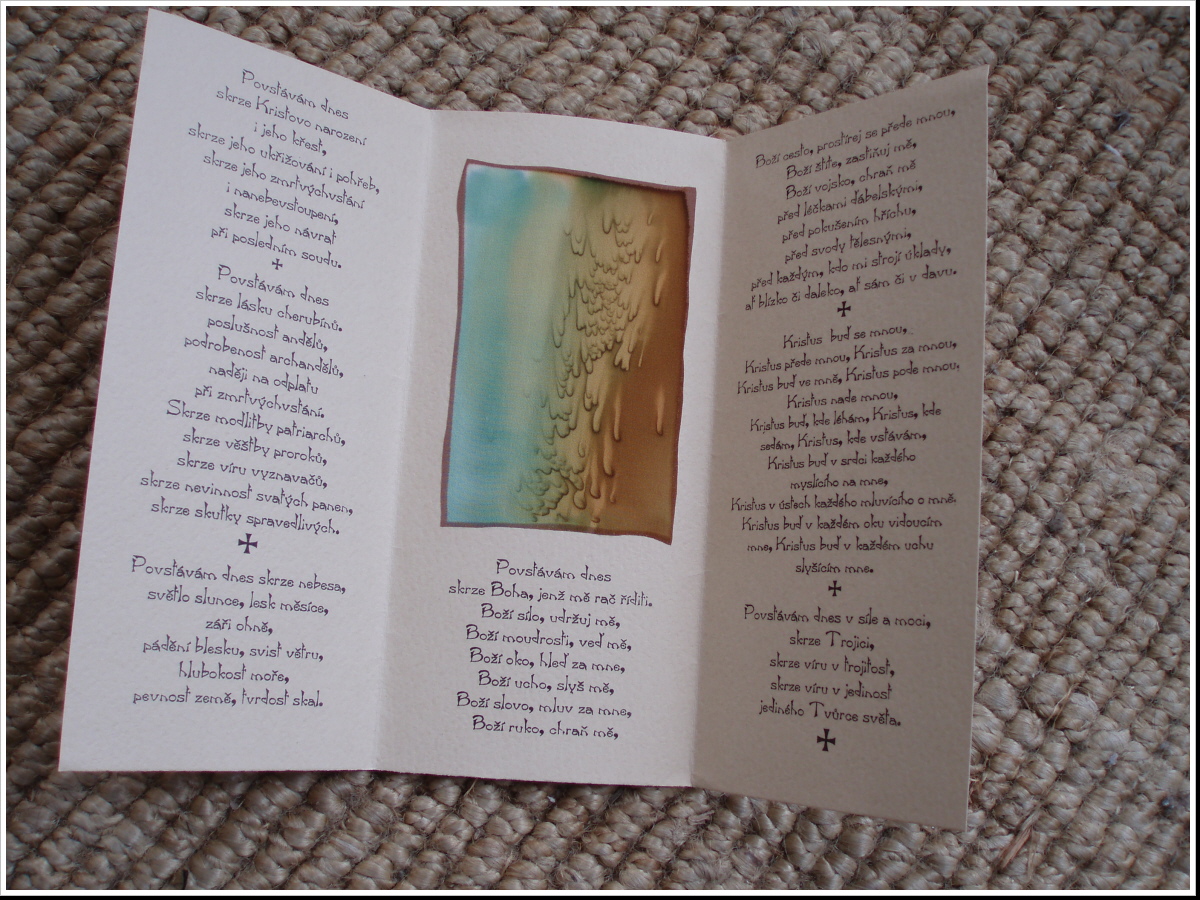 Povstávám dnes
skrze Kristovo narození
i jeho křest,
skrze jeho ukřižování i pohřeb,
skrze jeho zmrtvýchvstání
i nanebevstoupení,
skrze jeho návrat
při posledním soudu.
Povstávám dnes
skrze lásku cherubínů.
poslušnost andělů,
podrobenost archandělů,
naději na odplatu
při zmrtvýchvstání.
Skrze modlitby patriarchů,
skrze věštby proroků,
skrze víru vyznavačů,
skrze nevinnost svatých panen,
skrze skutky spravedlivých.
Povstávám dnes skrze nebesa,
světlo slunce, lesk měsíce,
záři ohně,
pádění blesku, svist větru,
hlubokost moře,
pevnost země, tvrdost skal.
Povstávám dnes
skrze Boha, jenž mě rač říditi.
Boží sílo, udržuj mě,
Boží moudrosti, veď mě,
Boží oko, hleď za mne,
Boží ucho, slyš mě,
Boží slovo, mluv za mne,
Boží ruko, chraň mě,
Boží cesto, prostírej se přede mnou,
Boží štíte, zastiňuj mě,
Boží vojsko, chraň mě
před léčkami ďábelskými,
před pokušením hříchu,
před svody tělesnými,
před každým, kdo mi strojí úklady,
ať blízko či daleko, ať sám či v davu.
Kristus buď se mnou,
Kristus přede mnou, Kristus za mnou,
Kristus buď ve mně, Kristus pode mnou,
Kristus nade mnou,
Kristus buď, kde léhám, Kristus, kde
sedám, Kristus, kde vstávám,
Kristus buď v srdci každého
myslícího na mne,
Kristus v ústech každého mluvícího o mně.
Kristus buď v každém oku vidoucím
mne, Kristus buď v každém uchu
slyšícím mne.
Povstávám dnes v síle a moci,
skrze Trojici,
skrze víru v trojitost,
skrze víru v jedinost
jediného Tvůrce světa.